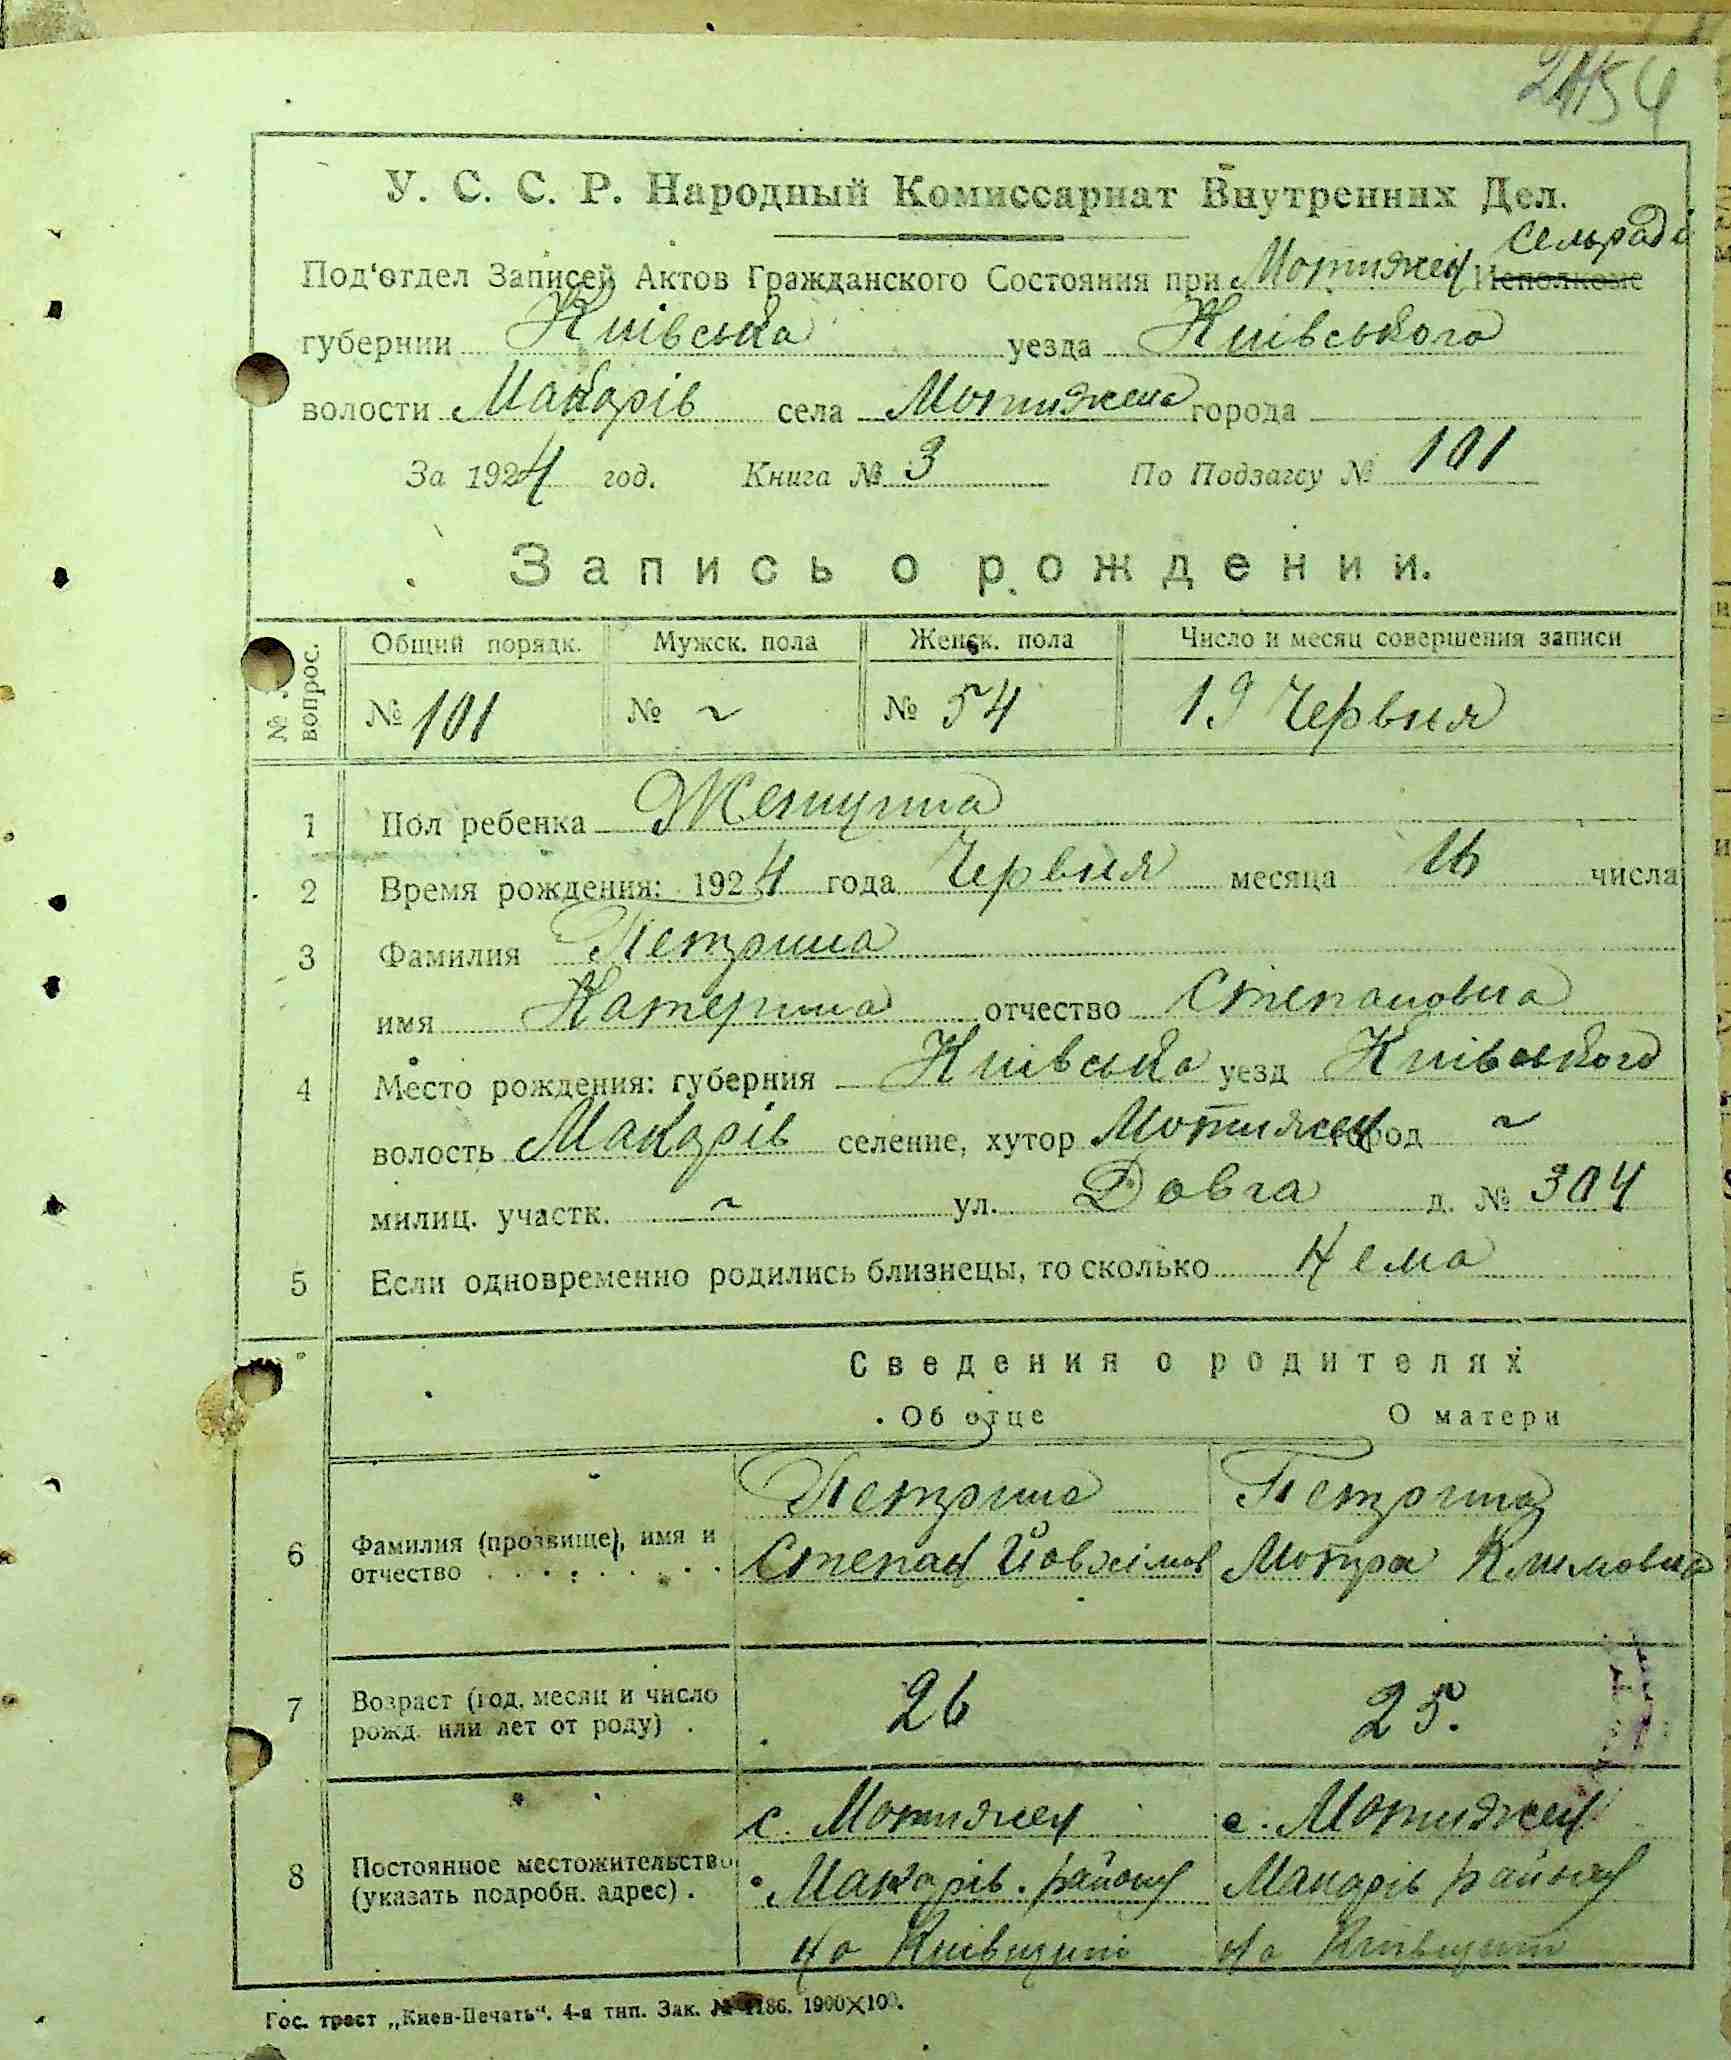 У. С. С. Р. Народный Комиссариат Внутренних Дел.
Сельраді
Под'отдел Записей Актов Гражданского Состояния при Мотижен Исполкоме
губернии Київська уезда Київського
волости Макарів села Мотижена города
За 1924 год. Книга № 3 По Подзагсу № 101
Запись о рождении.
№ вопрос. Общий порядк. Мужск. пола Женск. пола Число и месяц совершения записи
№ 101 № ~ № 54 19 Червня
1 Пол ребенка Женщина
2 Время рождения: 1924 года Червня месяца 16 числа
3 Фамилия Петрина
имя Катерина отчество Степановна
4 Место рождения: губерния Київська уезд Київського
волость Макарів селение, хутор Мотижен город ~
милиц. участк. ~ ул. Довга д. № 304
5 Если одновременно родились близнецы, то сколько Нема
Сведения о родителях
Об отце О матери
Петрина Петрина
6 Фамилия (прозвище), имя и отчество Степан Мотра Климовна
7 Возраст (год, месяц и число рожд. или лет от роду) 26 25.
с. Мотижен с. Мотижен
8 Постоянное местожительство (указать подробн. адрес) Макарів. району Макарів району
на Київщині на Київщині
Гос. трест „Киев-Печать“. 4-я тип. Зак. № 1186. 1900×100.